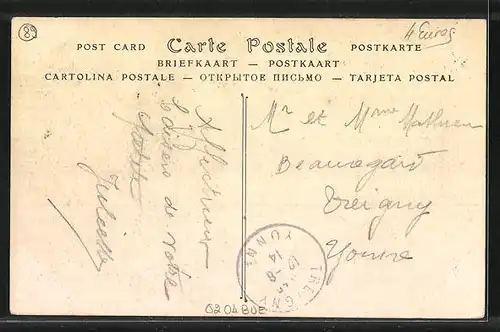 89
4 Euros
POST CARD Carte Postale POSTKARTE
BRIEFKAART — POSTKAART
CARTOLINA POSTALE — ОТКРЫТОЕ ПИСЬМО — TARJETA POSTAL
Affectueux
baisers de votre
Juliette
Mr et Mme Mathieu
Beauregard
Treigny
Yonne
TREIGNY
YONNE
0204BUE